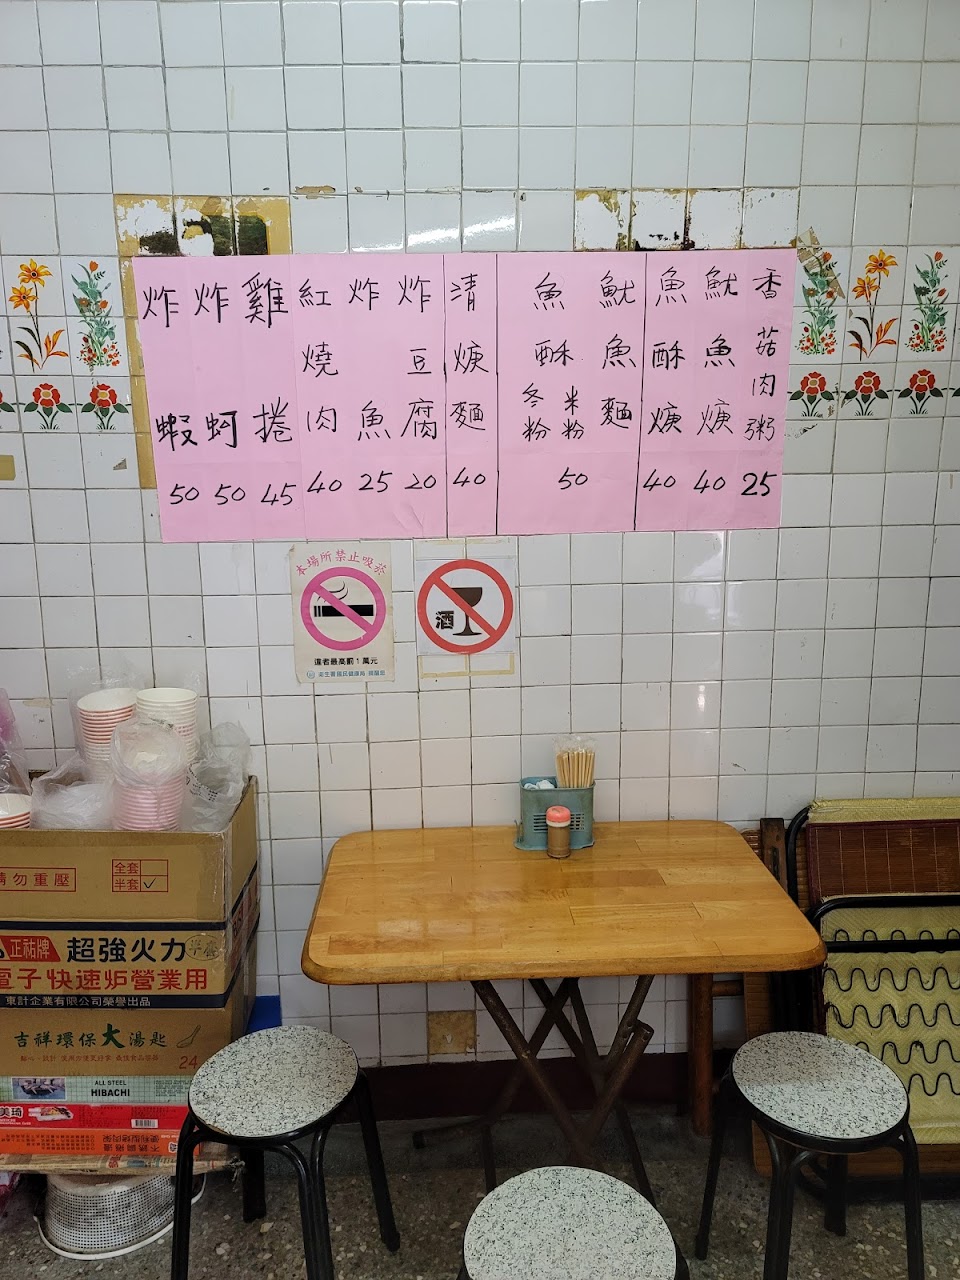 香菇肉粥 25
魷魚焿 40
魚酥焿 40
魷魚麵
魚酥米粉 冬粉
50
清焿麵 40
炸豆腐 20
炸魚 25
紅燒肉 40
雞捲 45
炸蚵 50
炸蝦 50
本場所禁止吸菸
違者最高罰1萬元
酒
請勿重壓
全套
半套✓
正祐牌 超強火力 半套
電子快速炉營業用
東計企業有限公司榮譽出品
吉祥環保大湯匙
24
ALL STEEL
HIBACHI
美琦